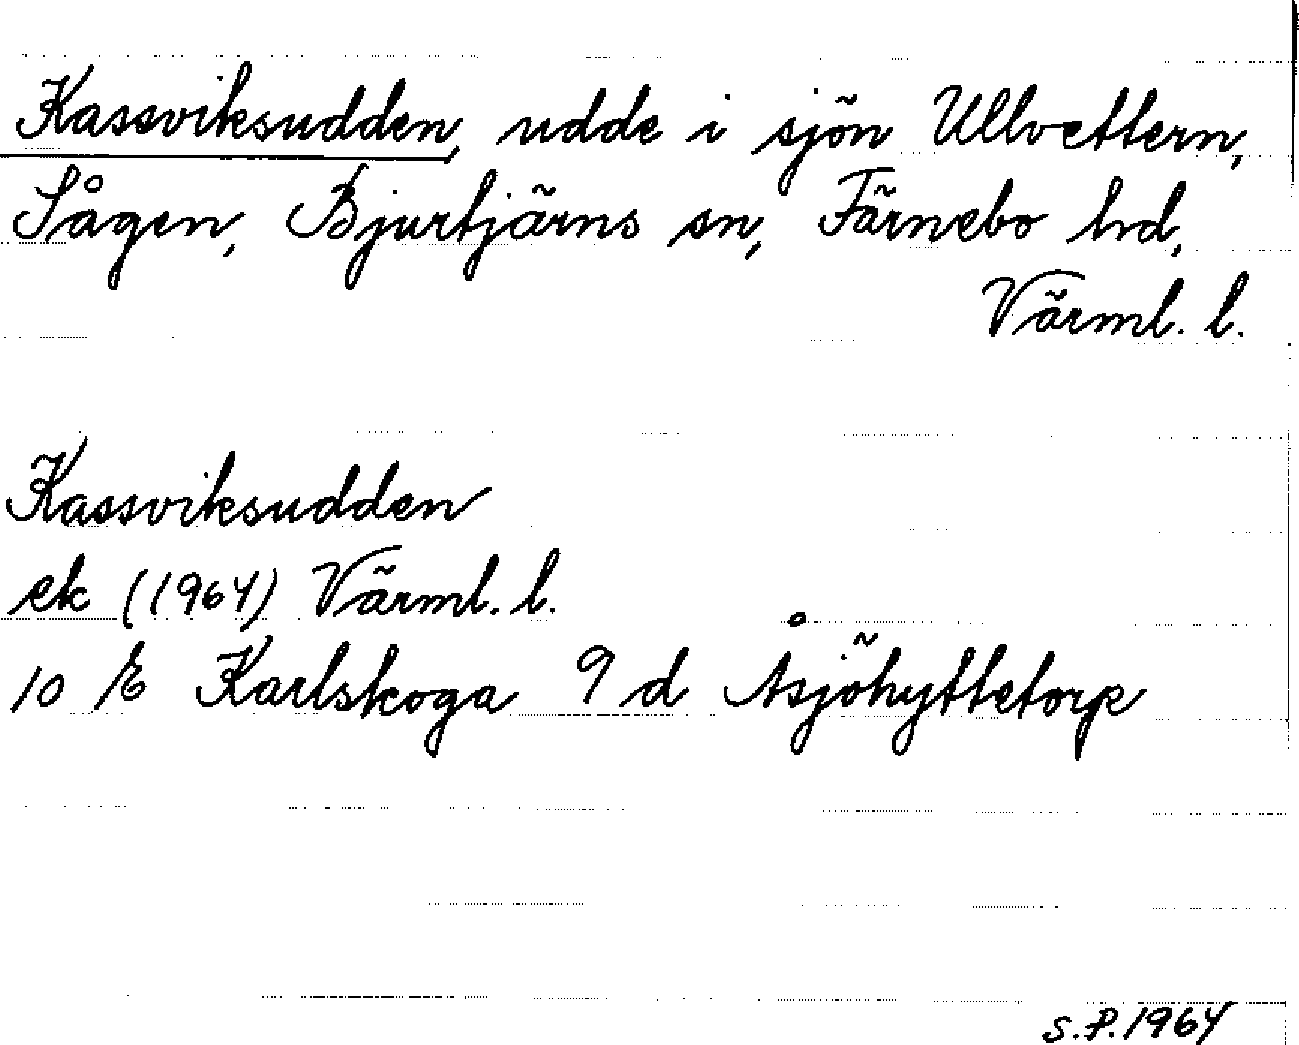 Kassviksudden, udde i sjön Ullvettern,
Sågen, Bjurtjärns sn, Färnebo hd,
Värml. l.
Kassviksudden
ek (1964) Värml. l.
10 E Karlskoga 9 d Åsjöhyttetorp
S.P. 1964